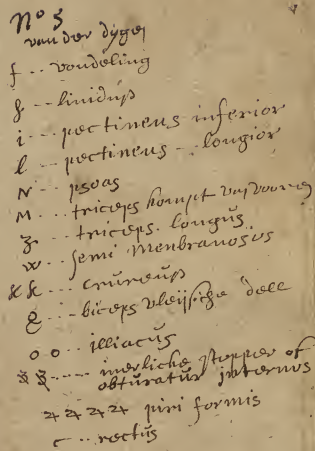 N° 5
van der dÿgej
f .. vondeling
h .. lividuß
i ... pectineus inferior
l ... pectineus .. longior
N .. psoas
M ... triceps kompt van vooren
z ... triceps. longüs
w .. semi menbranosüs
kk ... crureuß
g ... biceps vleissiche deel
o o .. illiacüs
---- inerliche stopper of
obturatür internus
4 4 4 4 piri formis
c .. rectüs